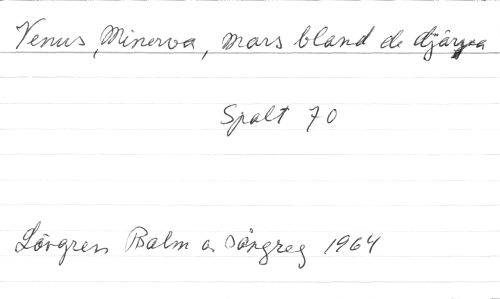 Venus, Minerva, mars bland de djärva
Spalt 70
Lövgren Balm o sångreg 1964